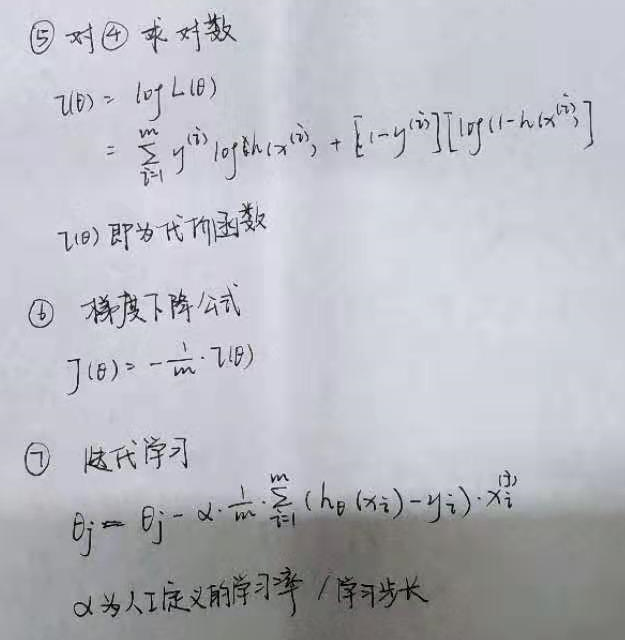 ⑤ 对④求对数
l(θ) = log L(θ)
= ∑_{i=1}^{m} y^{(i)} log h(x^{(i)}) + [1-y^{(i)}][log(1-h(x^{(i)})]
l(θ) 即为代价函数
⑥ 梯度下降公式
J(θ) = -1/m · l(θ)
⑦ 迭代学习
θ_j = θ_j - α · 1/m · ∑_{i=1}^{m} (h_θ(x_i) - y_i) · x_i^{(j)}
α为人工定义的学习率 / 学习步长